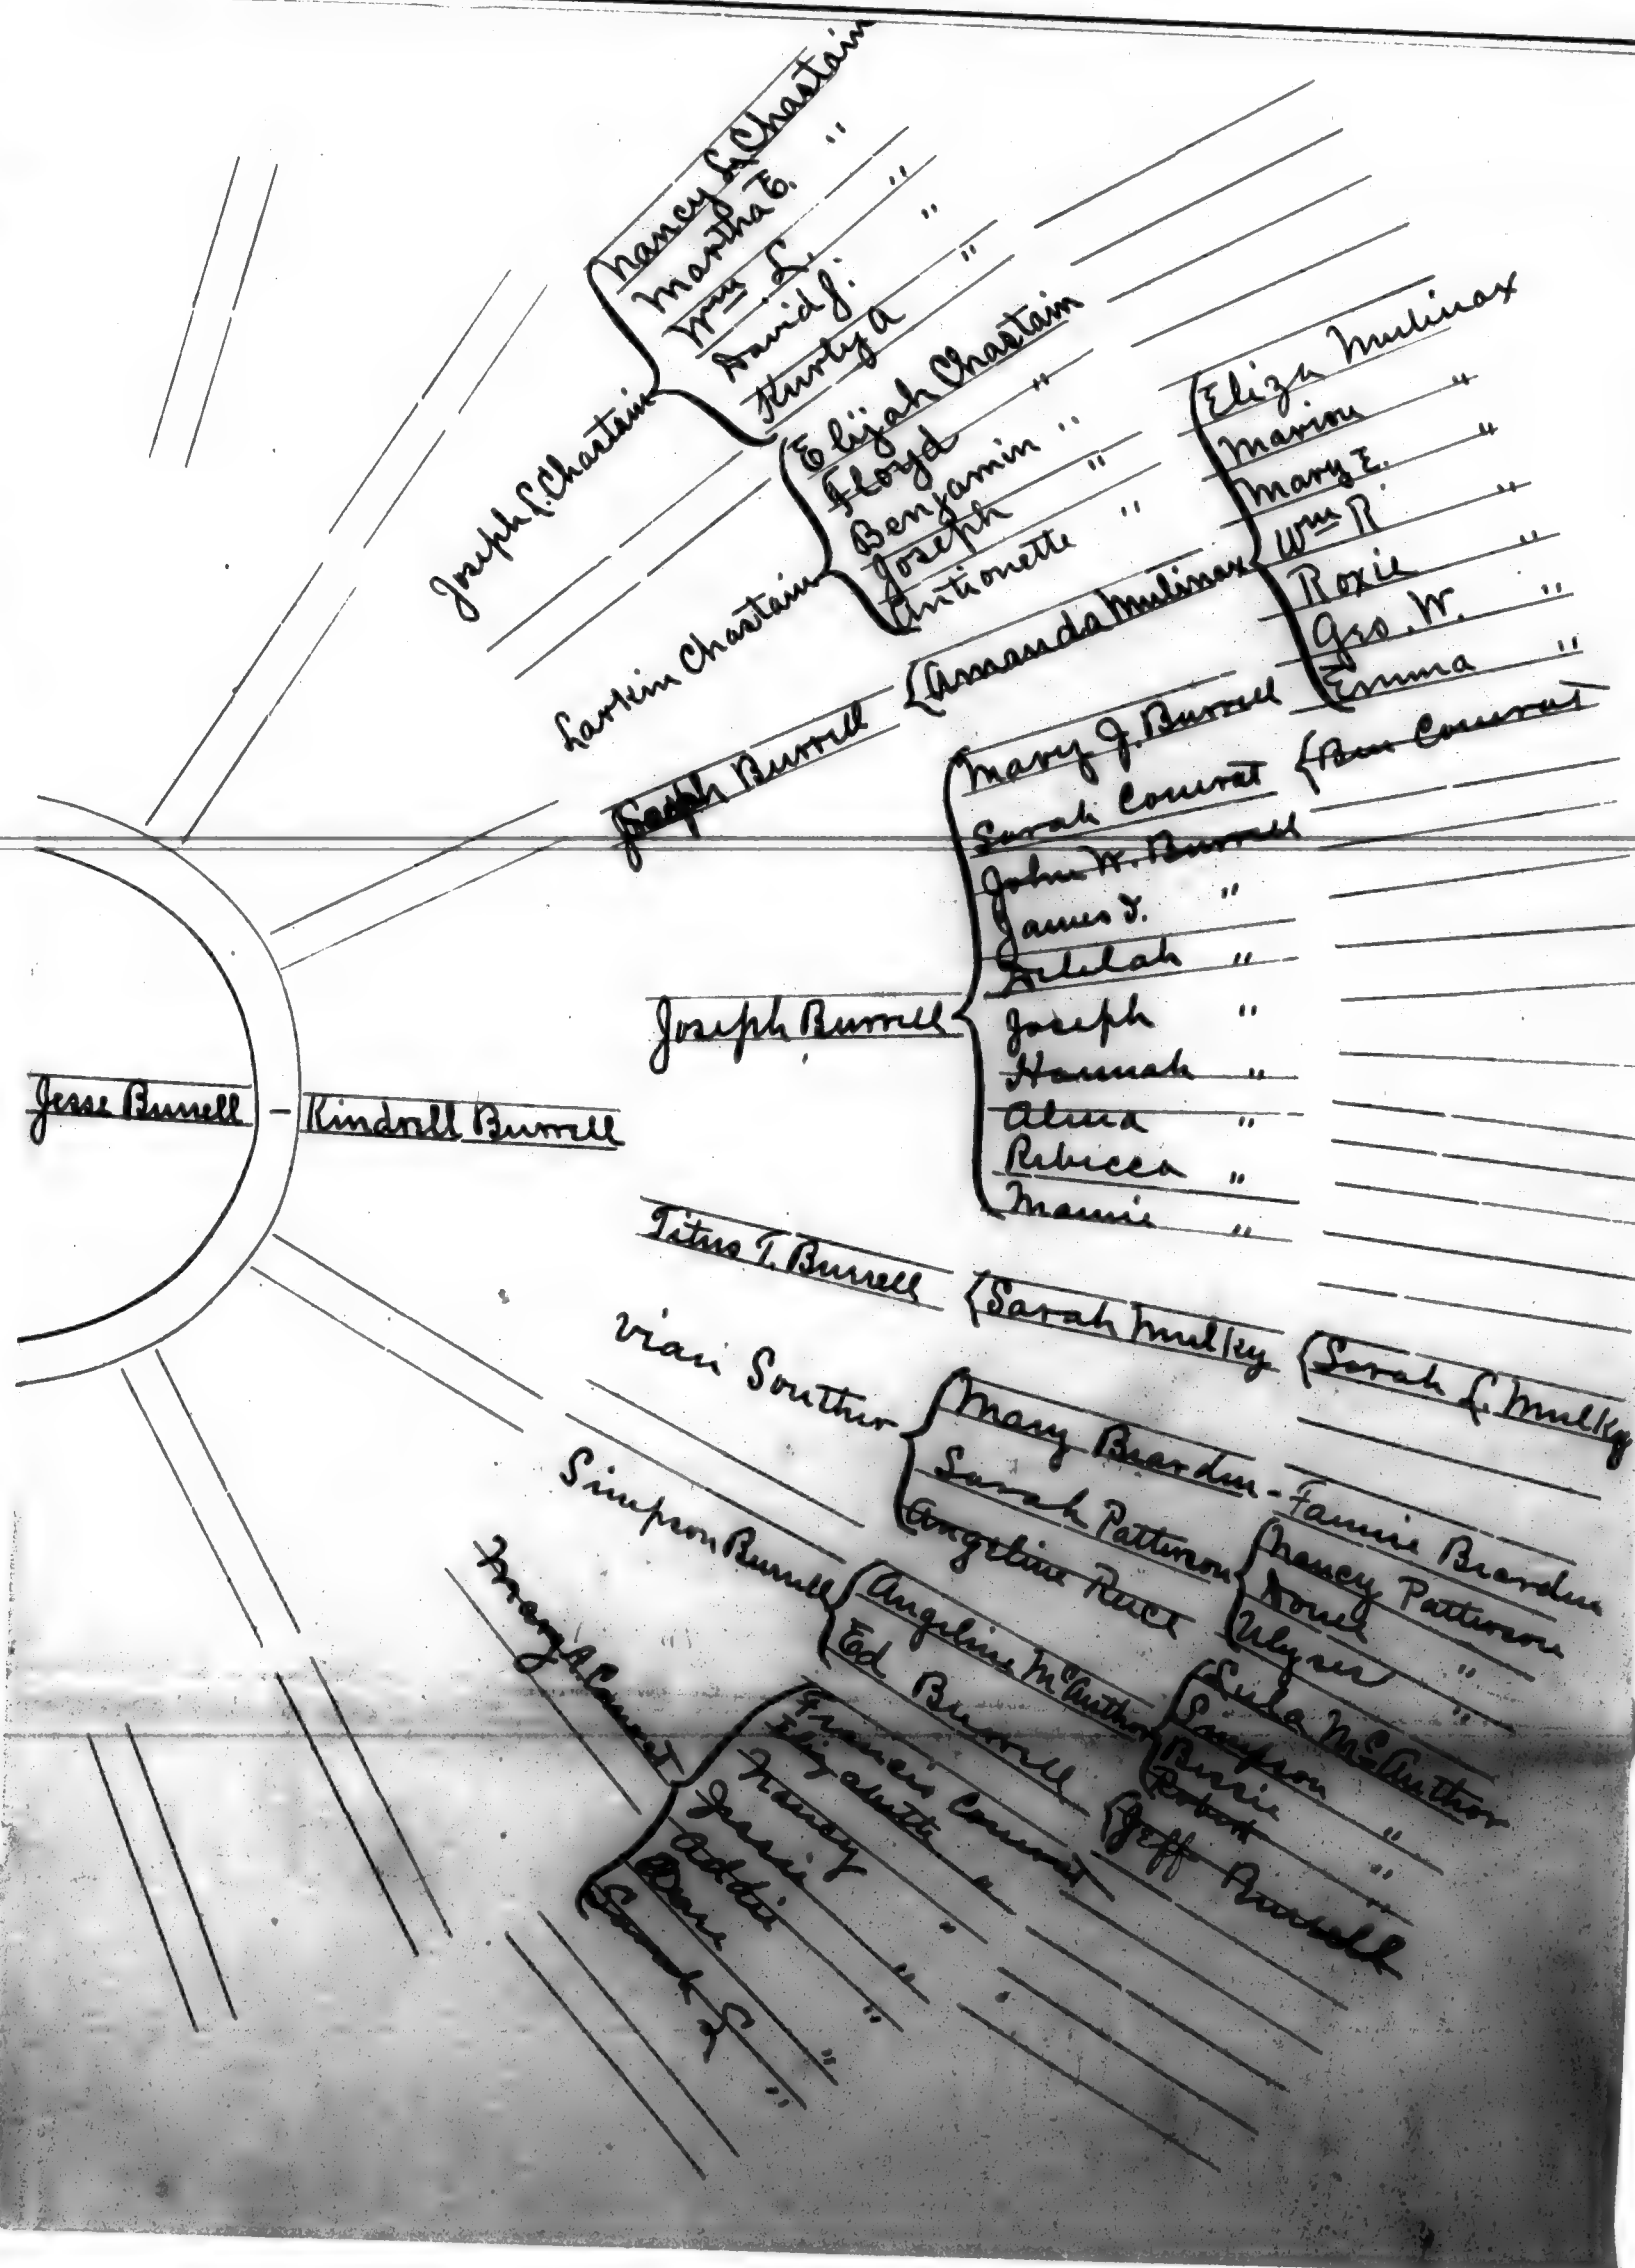 Jesse Burrell - Kindrell Burrell
Joseph L. Chastain
Nancy L. Chastain
Martha E. "
Wm. L. "
David J. "
Kurty A "
Larkin Chastain
Elijah Chastain
Floyd "
Benjamin "
Joseph "
Antionette "
Joseph Burrell
Amanda Mulinax
Eliza Mulinax
Marion "
Mary E. "
Wm R "
Roxie "
Geo. W. "
Emma "
Joseph Burrell
Mary J. Burrell
Sarah Courat
Ben Courat
John W. Burrell
James T. "
Delilah "
Joseph "
Hannah "
Alma "
Rebecca "
Mamie "
Titus T. Burrell
Sarah Mulky
Sarah L. Mulky
Vian Souther
Mary Bearden - Fannie Bearden
Sarah Patterson
Nancy Patterson
"
Ulyses "
Angeline Reece
Simpson Burrell
Angeline McAuthor
Lula McAuthor
Simpson "
Bessie "
Robert "
Ed Burrell
Jeff Burrell
Mary A. Courat
Francis Courat
"
Nancy "
Jessie "
Addie "
"
Sarah "